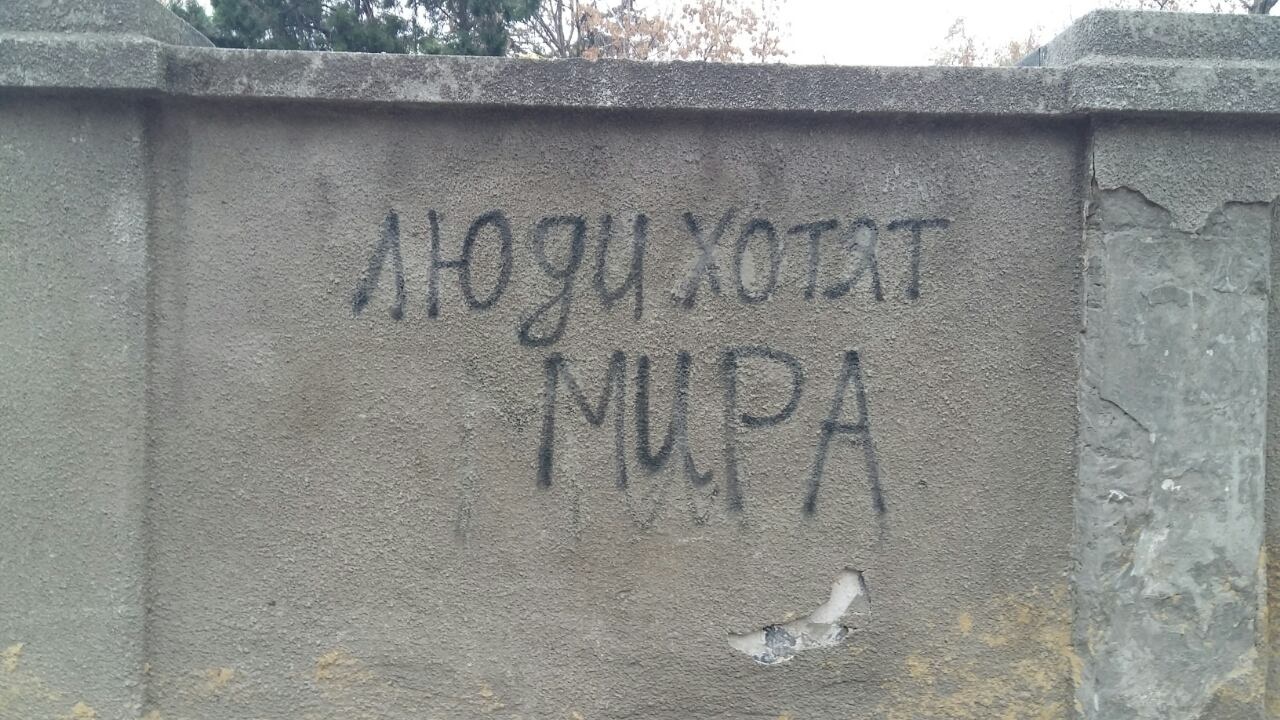 ЛЮДИ ХОТЯТ
МИРА